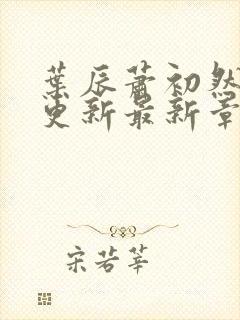 葉辰蕭初然
更新最新章
宋若莘